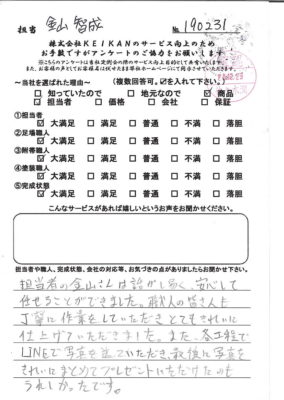 担当 金山 智成 № 190231
株式会社KEIKANのサービス向上のため
お手数ですがアンケートのご協力をお願いします。
～当社を選ばれた理由～ (複数回答可。☑を入れて下さい。)
□ 知っていたので □ 地元なので ☑ 商品
☑ 担当者 □ 価格 □ 会社 □ 保証
①担当者
☑ 大満足 □ 満足 □ 普通 □ 不満 □ 落胆
②足場職人
☑ 大満足 □ 満足 □ 普通 □ 不満 □ 落胆
③附帯職人
☑ 大満足 □ 満足 □ 普通 □ 不満 □ 落胆
④塗装職人
☑ 大満足 □ 満足 □ 普通 □ 不満 □ 落胆
⑤完成状態
☑ 大満足 □ 満足 □ 普通 □ 不満 □ 落胆
こんなサービスがあれば嬉しいというお声をお聞かせください。
担当者や職人、完成状態、会社の対応等、お気づきの点がありましたらお聞かせ下さい。
担当者の金山さんは話がし易く、安心して
任せることができました。職人の皆さんも
丁寧に作業をしていただきとてもきれいに
仕上げていただきました。また、各工程で
LINEで写真を送っていただき、最後に写真を
きれいにまとめてプレゼントいただけたのも
うれしかったです。